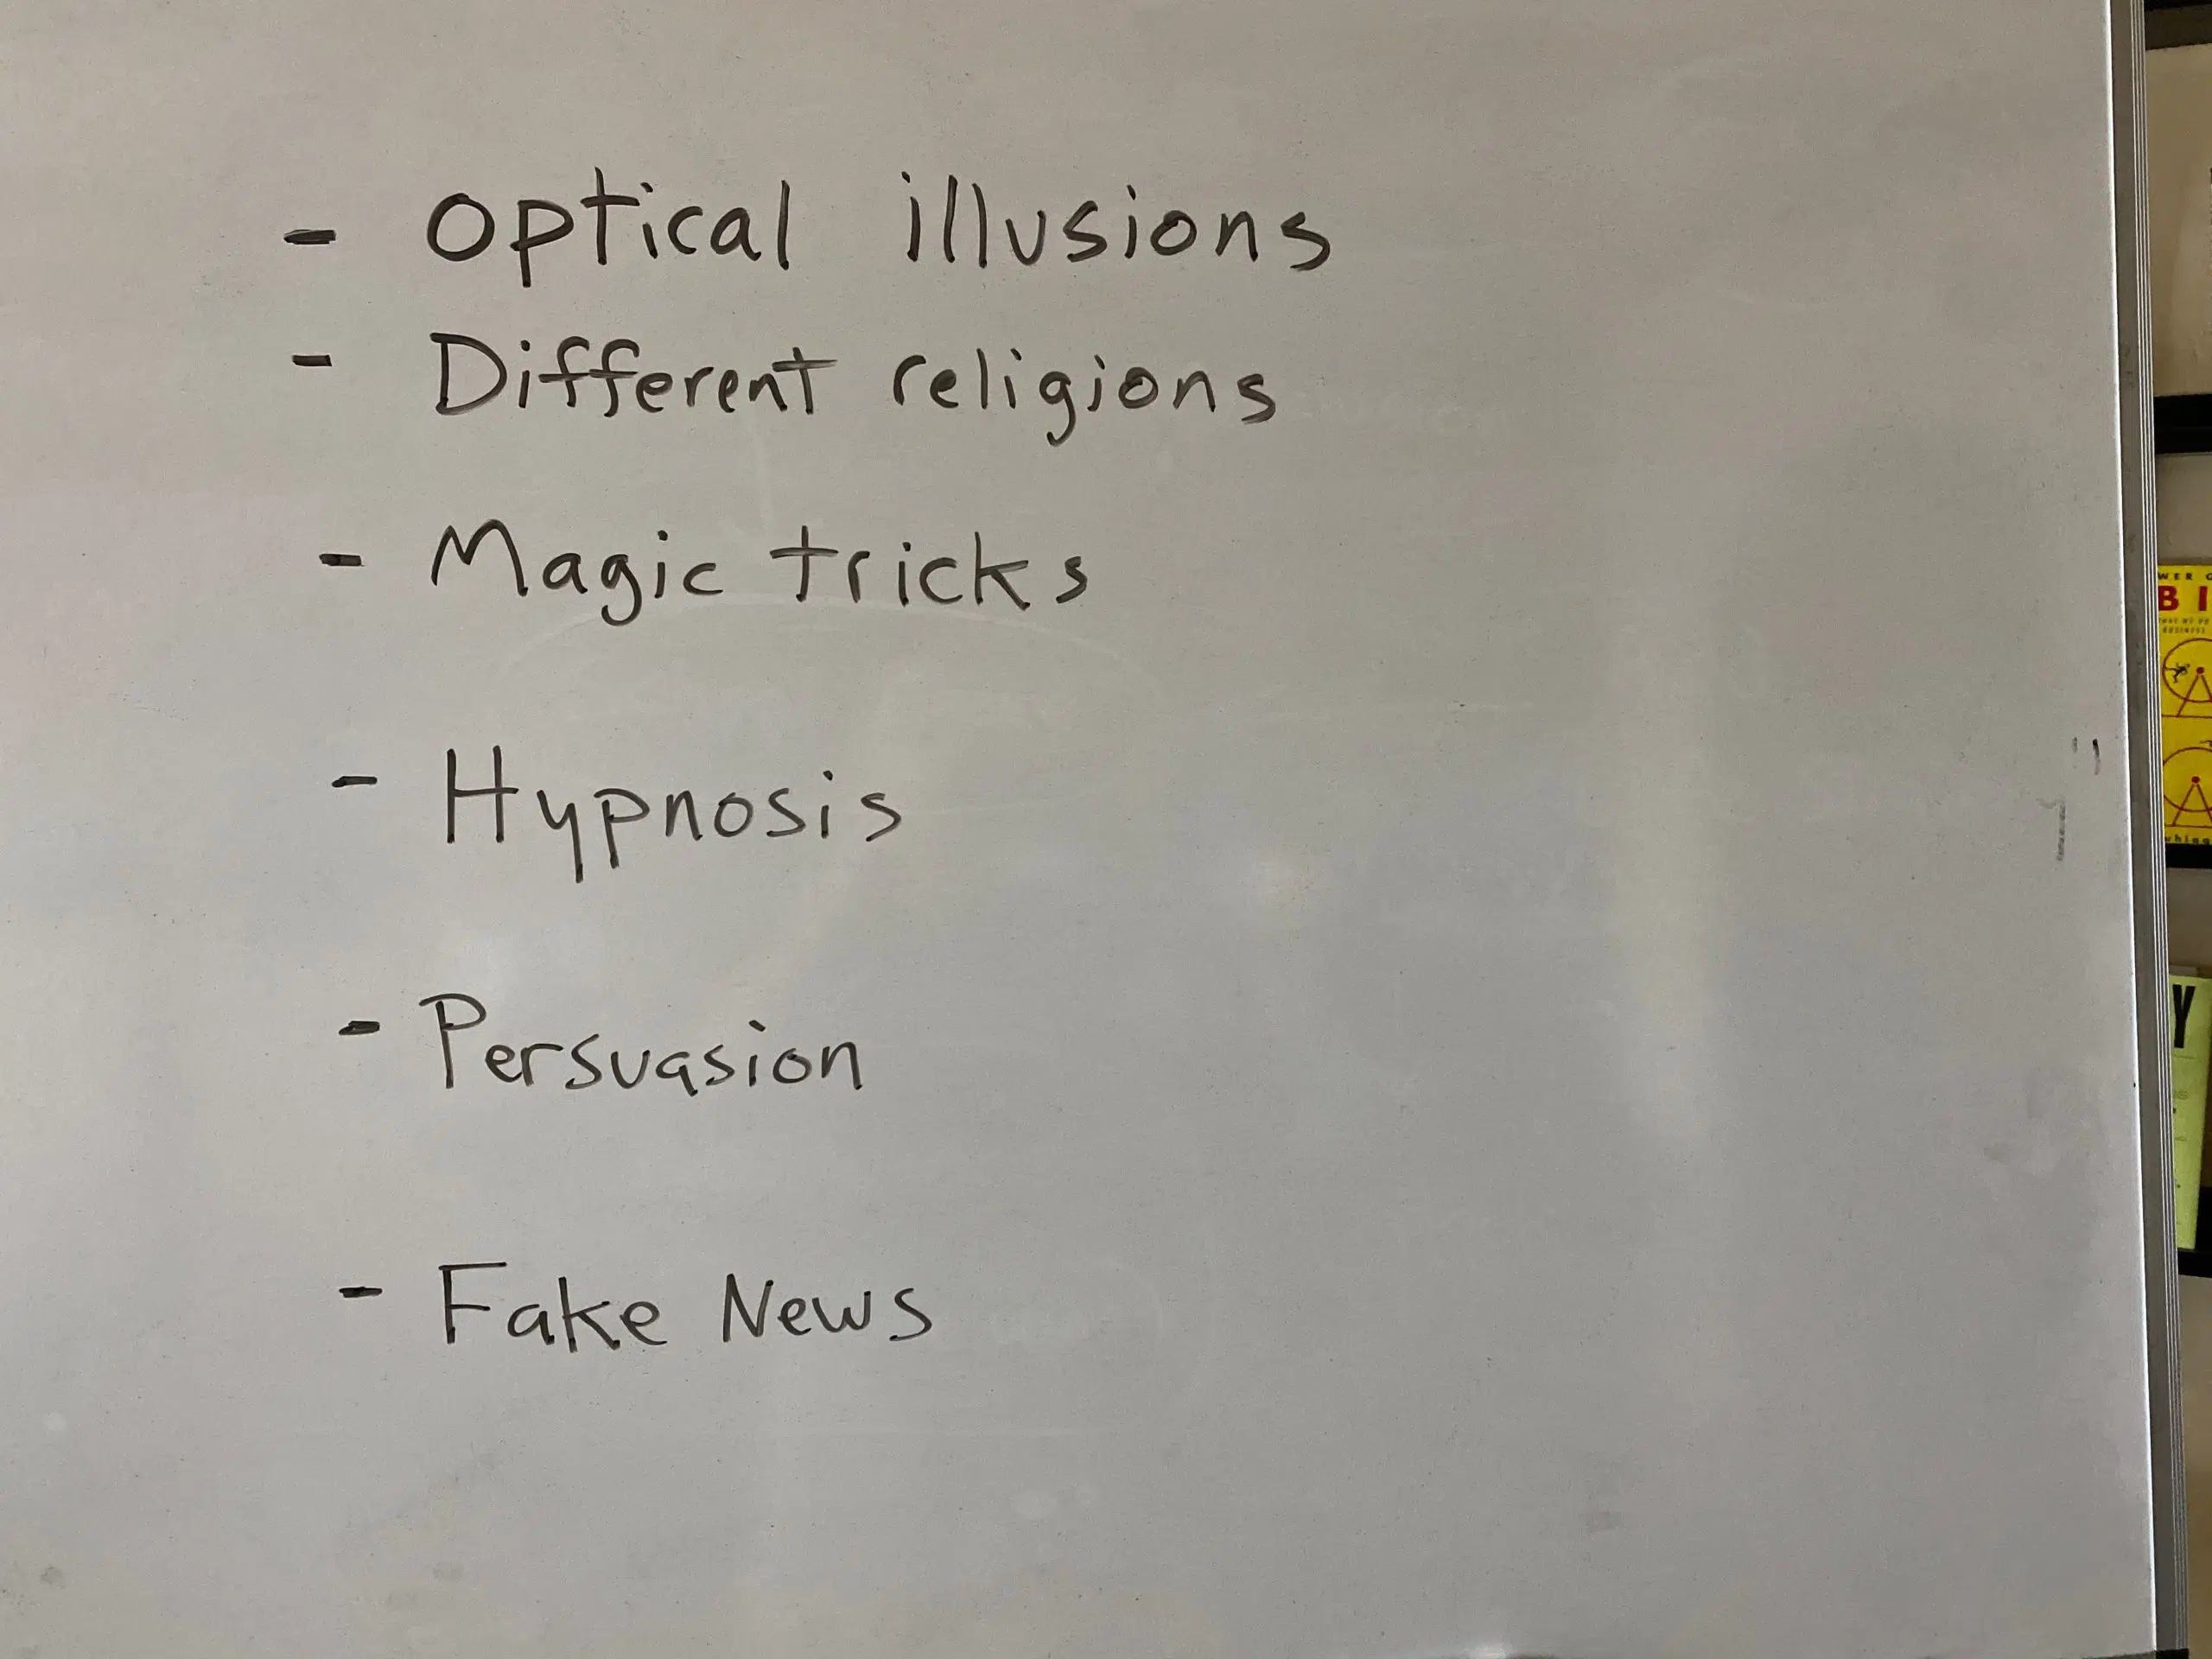 - Optical illusions
- Different religions
- Magic tricks
- Hypnosis
- Persuasion
- Fake News
WER
BI
Y